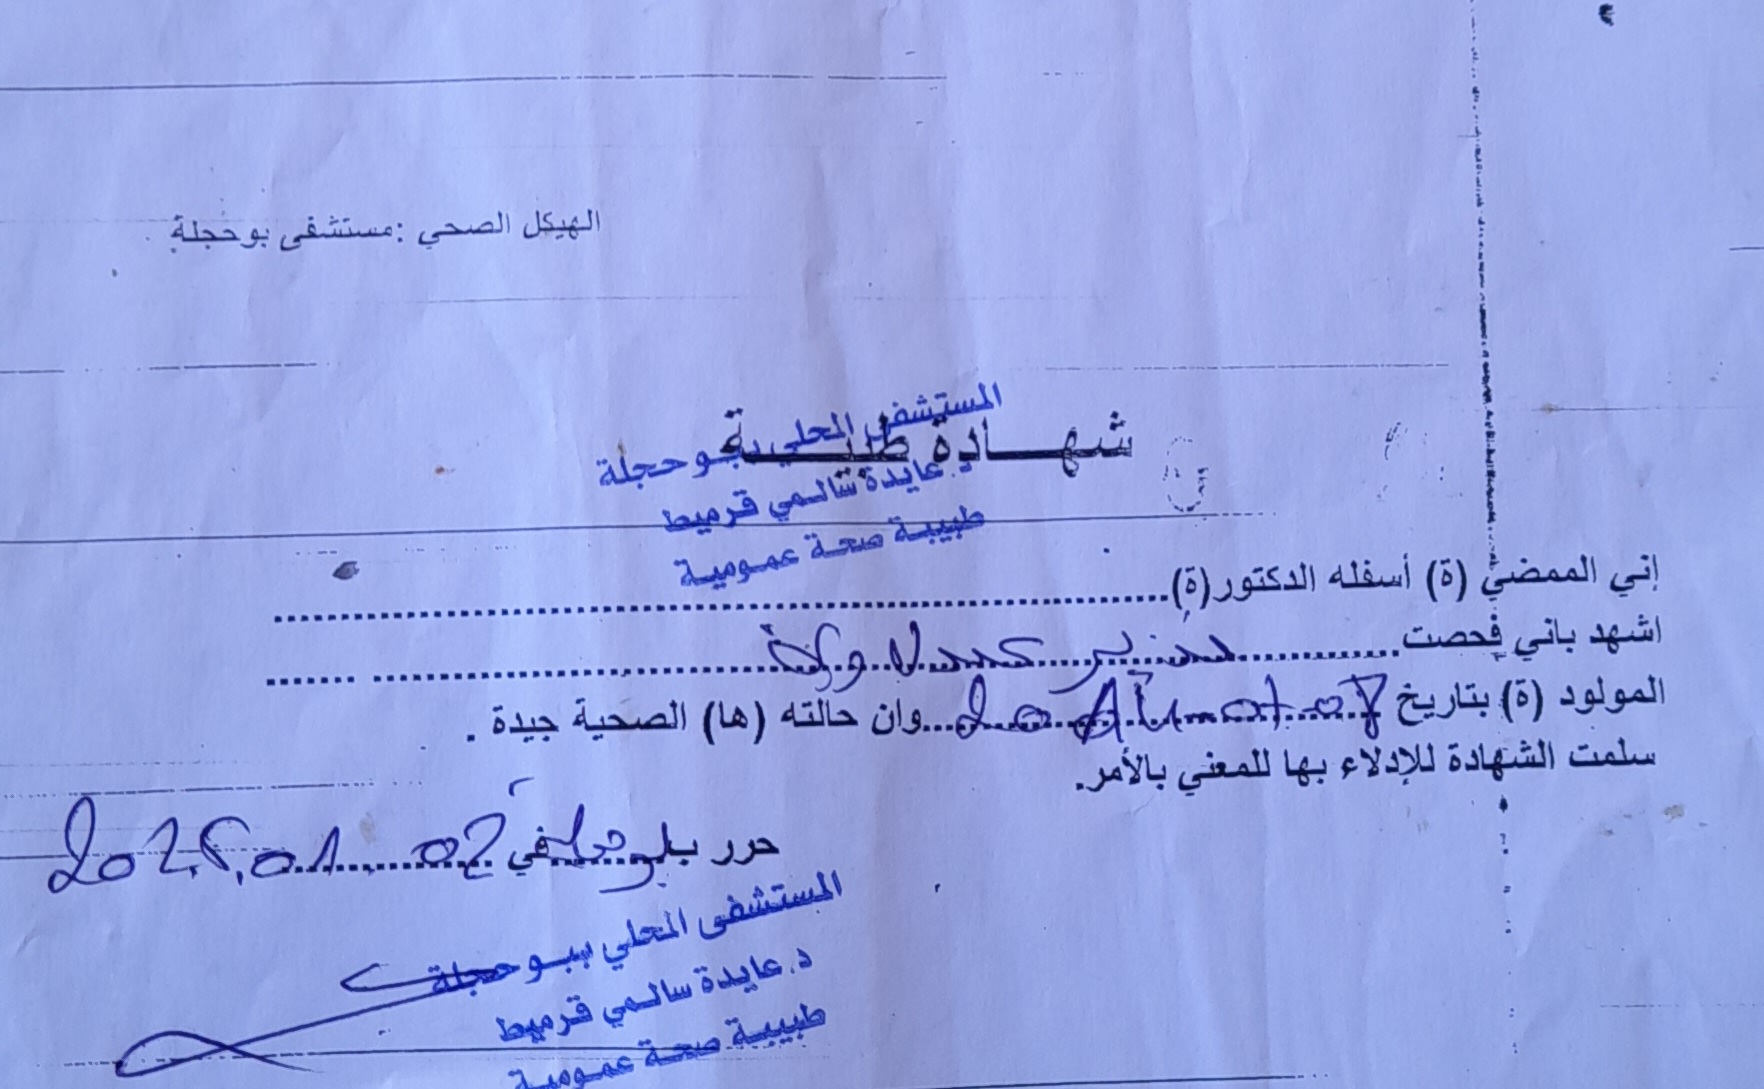 الهيكل الصحي :مستشفى بوحجلة
شهـــادة طبيـــة
المستشفى المحلي ببـوحجلة
د. عايدة سالـمي قـرميط
طبيبـة صحـة عمـوميـة
إني الممضي (ة) أسفله الدكتور(ة)
اشهد باني فحصت
المولود (ة) بتاريخ وان حالته (ها) الصحية جيدة .
سلمت الشهادة للإدلاء بها للمعني بالأمر.
حرر ب في
المستشفى المحلي ببـوحجلة
د. عايدة سالـمي قـرميط
طبيبـة صحـة عمـوميـة